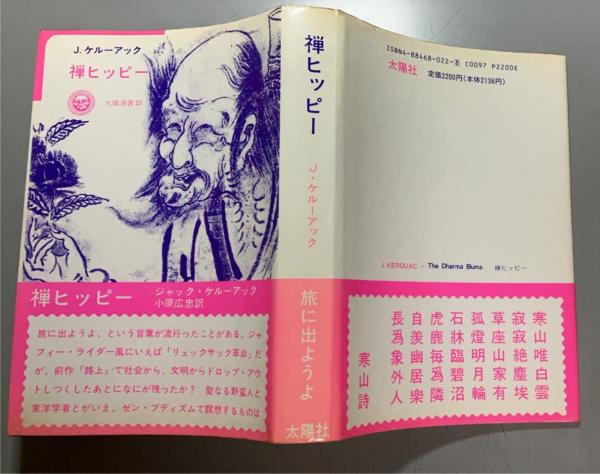 J.ケルーアック
禅ヒッピー
太陽選書22
禅ヒッピー
ジャック・ケルーアック
小原広忠訳
旅に出ようよ、という言葉が流行ったことがある。ジャ
フィー・ライダー風にいえば「リュックサック革命」だ
が、前作『路上』で社会から、文明からドロップ・アウ
トしつくしたあとになにが残ったか？ 聖なる野蛮人と
東洋学者とがいま、ゼン・ブディズムで瞑想するものは
禅ヒッピー
J・ケルーアック
旅に出ようよ
太陽社
ISBN4-88468-022-8 C0097 P2200E
太陽社 定価2200円(本体2136円)
J.KEROUAC — The Dharma Bums 禅ヒッピー
寒山唯白雲
寂寂絶塵埃
草座山家有
孤燈明月輪
石牀臨碧沼
虎鹿毎爲隣
自羨幽居樂
長爲象外人
寒山詩